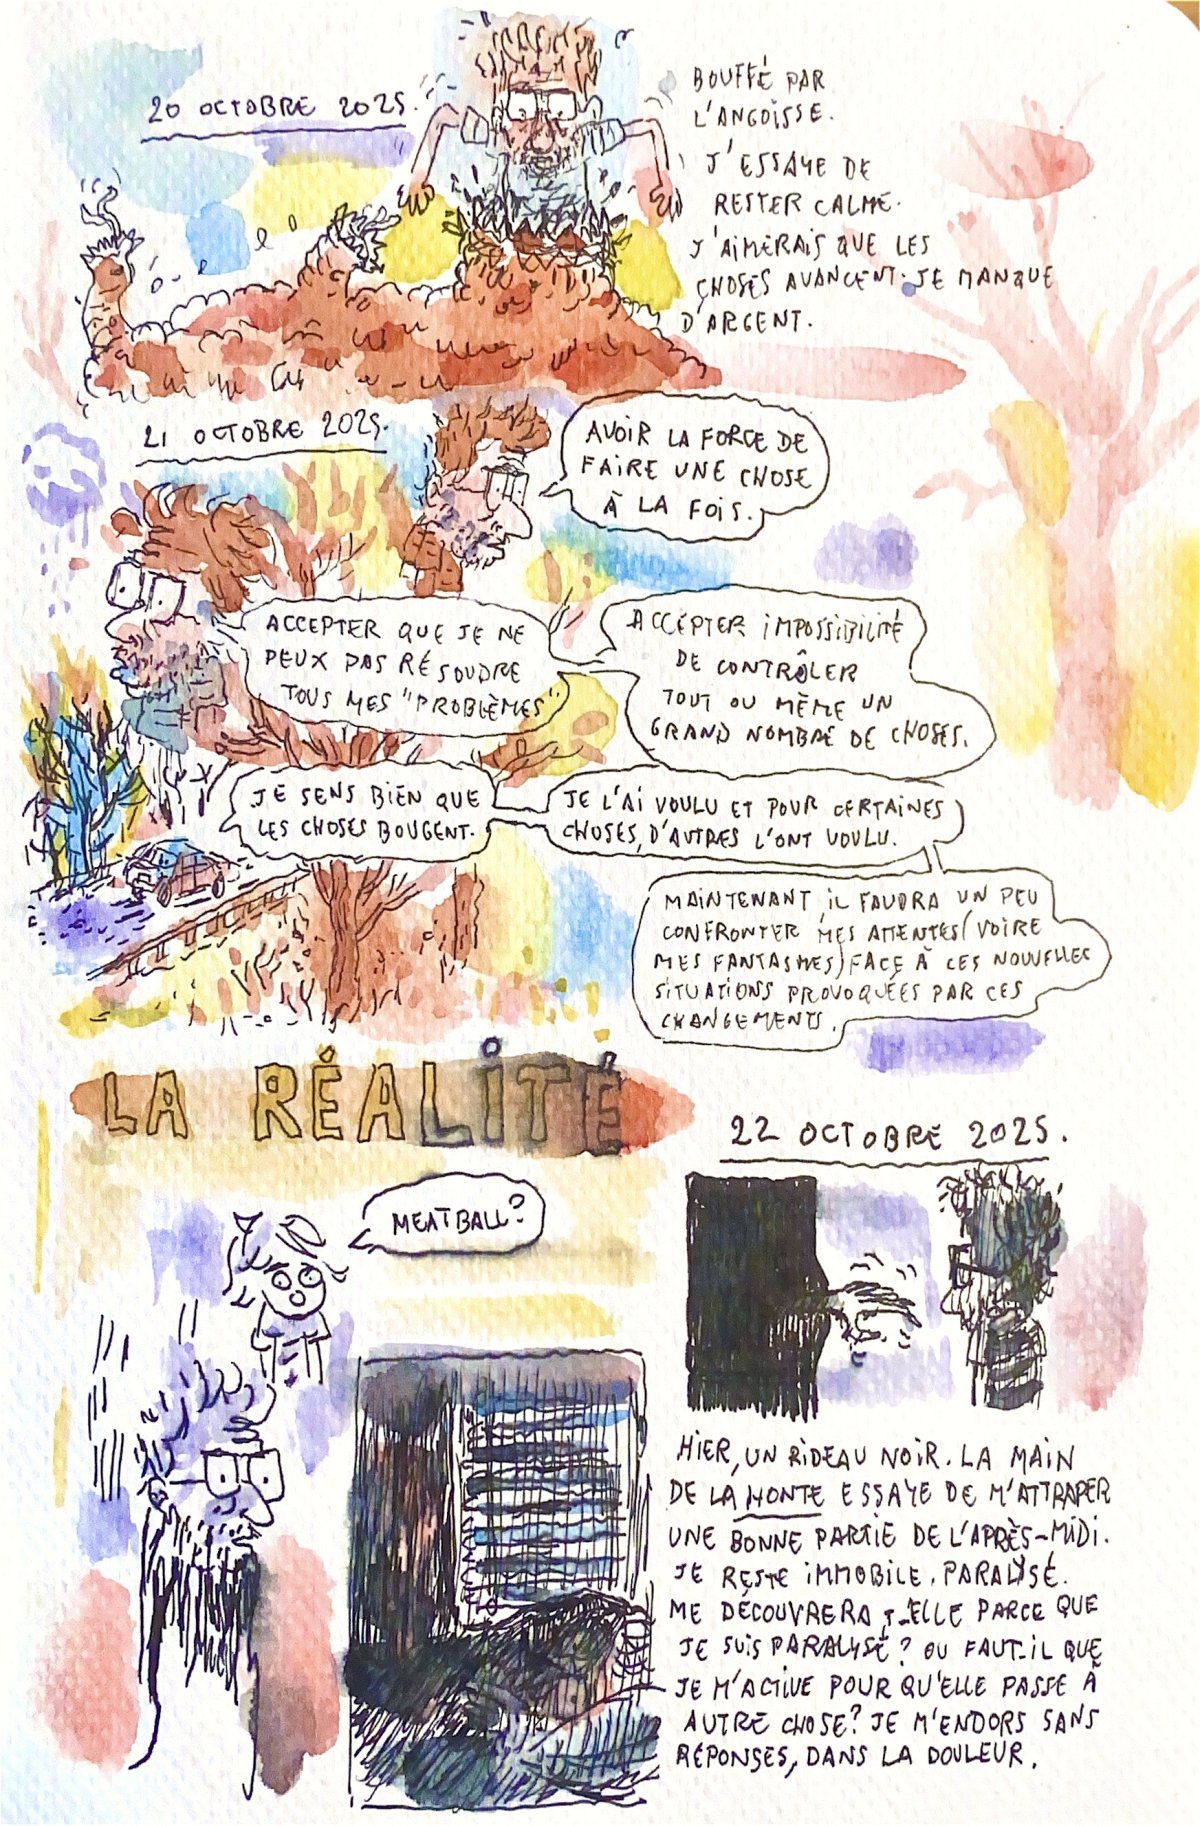 20 OCTOBRE 2025.
BOUFFÉ PAR
L'ANGOISSE.
J'ESSAYE DE
RESTER CALME.
J'AIMERAIS QUE LES
CHOSES AVANCENT. JE MANQUE
D'ARGENT.
21 OCTOBRE 2025.
AVOIR LA FORCE DE
FAIRE UNE CHOSE
À LA FOIS.
ACCEPTER QUE JE NE
PEUX PAS RÉSOUDRE
TOUS MES "PROBLÈMES"
ACCEPTER IMPOSSIBILITÉ
DE CONTRÔLER
TOUT OU MÊME UN
GRAND NOMBRE DE CHOSES.
JE SENS BIEN QUE
LES CHOSES BOUGENT.
JE L'AI VOULU ET POUR CERTAINES
CHOSES, D'AUTRES L'ONT VOULU.
MAINTENANT IL FAUDRA UN PEU
CONFRONTER MES ATTENTES (VOIRE
MES FANTASMES) FACE À CES NOUVELLES
SITUATIONS PROVOQUÉES PAR CES
CHANGEMENTS.
LA RÉALITÉ
MEATBALL?
22 OCTOBRE 2025.
HIER, UN RIDEAU NOIR. LA MAIN
DE LA HONTE ESSAYE DE M'ATTRAPER
UNE BONNE PARTIE DE L'APRÈS-MIDI.
JE RESTE IMMOBILE. PARALYSÉ.
ME DÉCOUVRERA T-ELLE PARCE QUE
JE SUIS PARALYSÉ? OU FAUT-IL QUE
JE M'ACTIVE POUR QU'ELLE PASSE À
AUTRE CHOSE? JE M'ENDORS SANS
RÉPONSES, DANS LA DOULEUR.